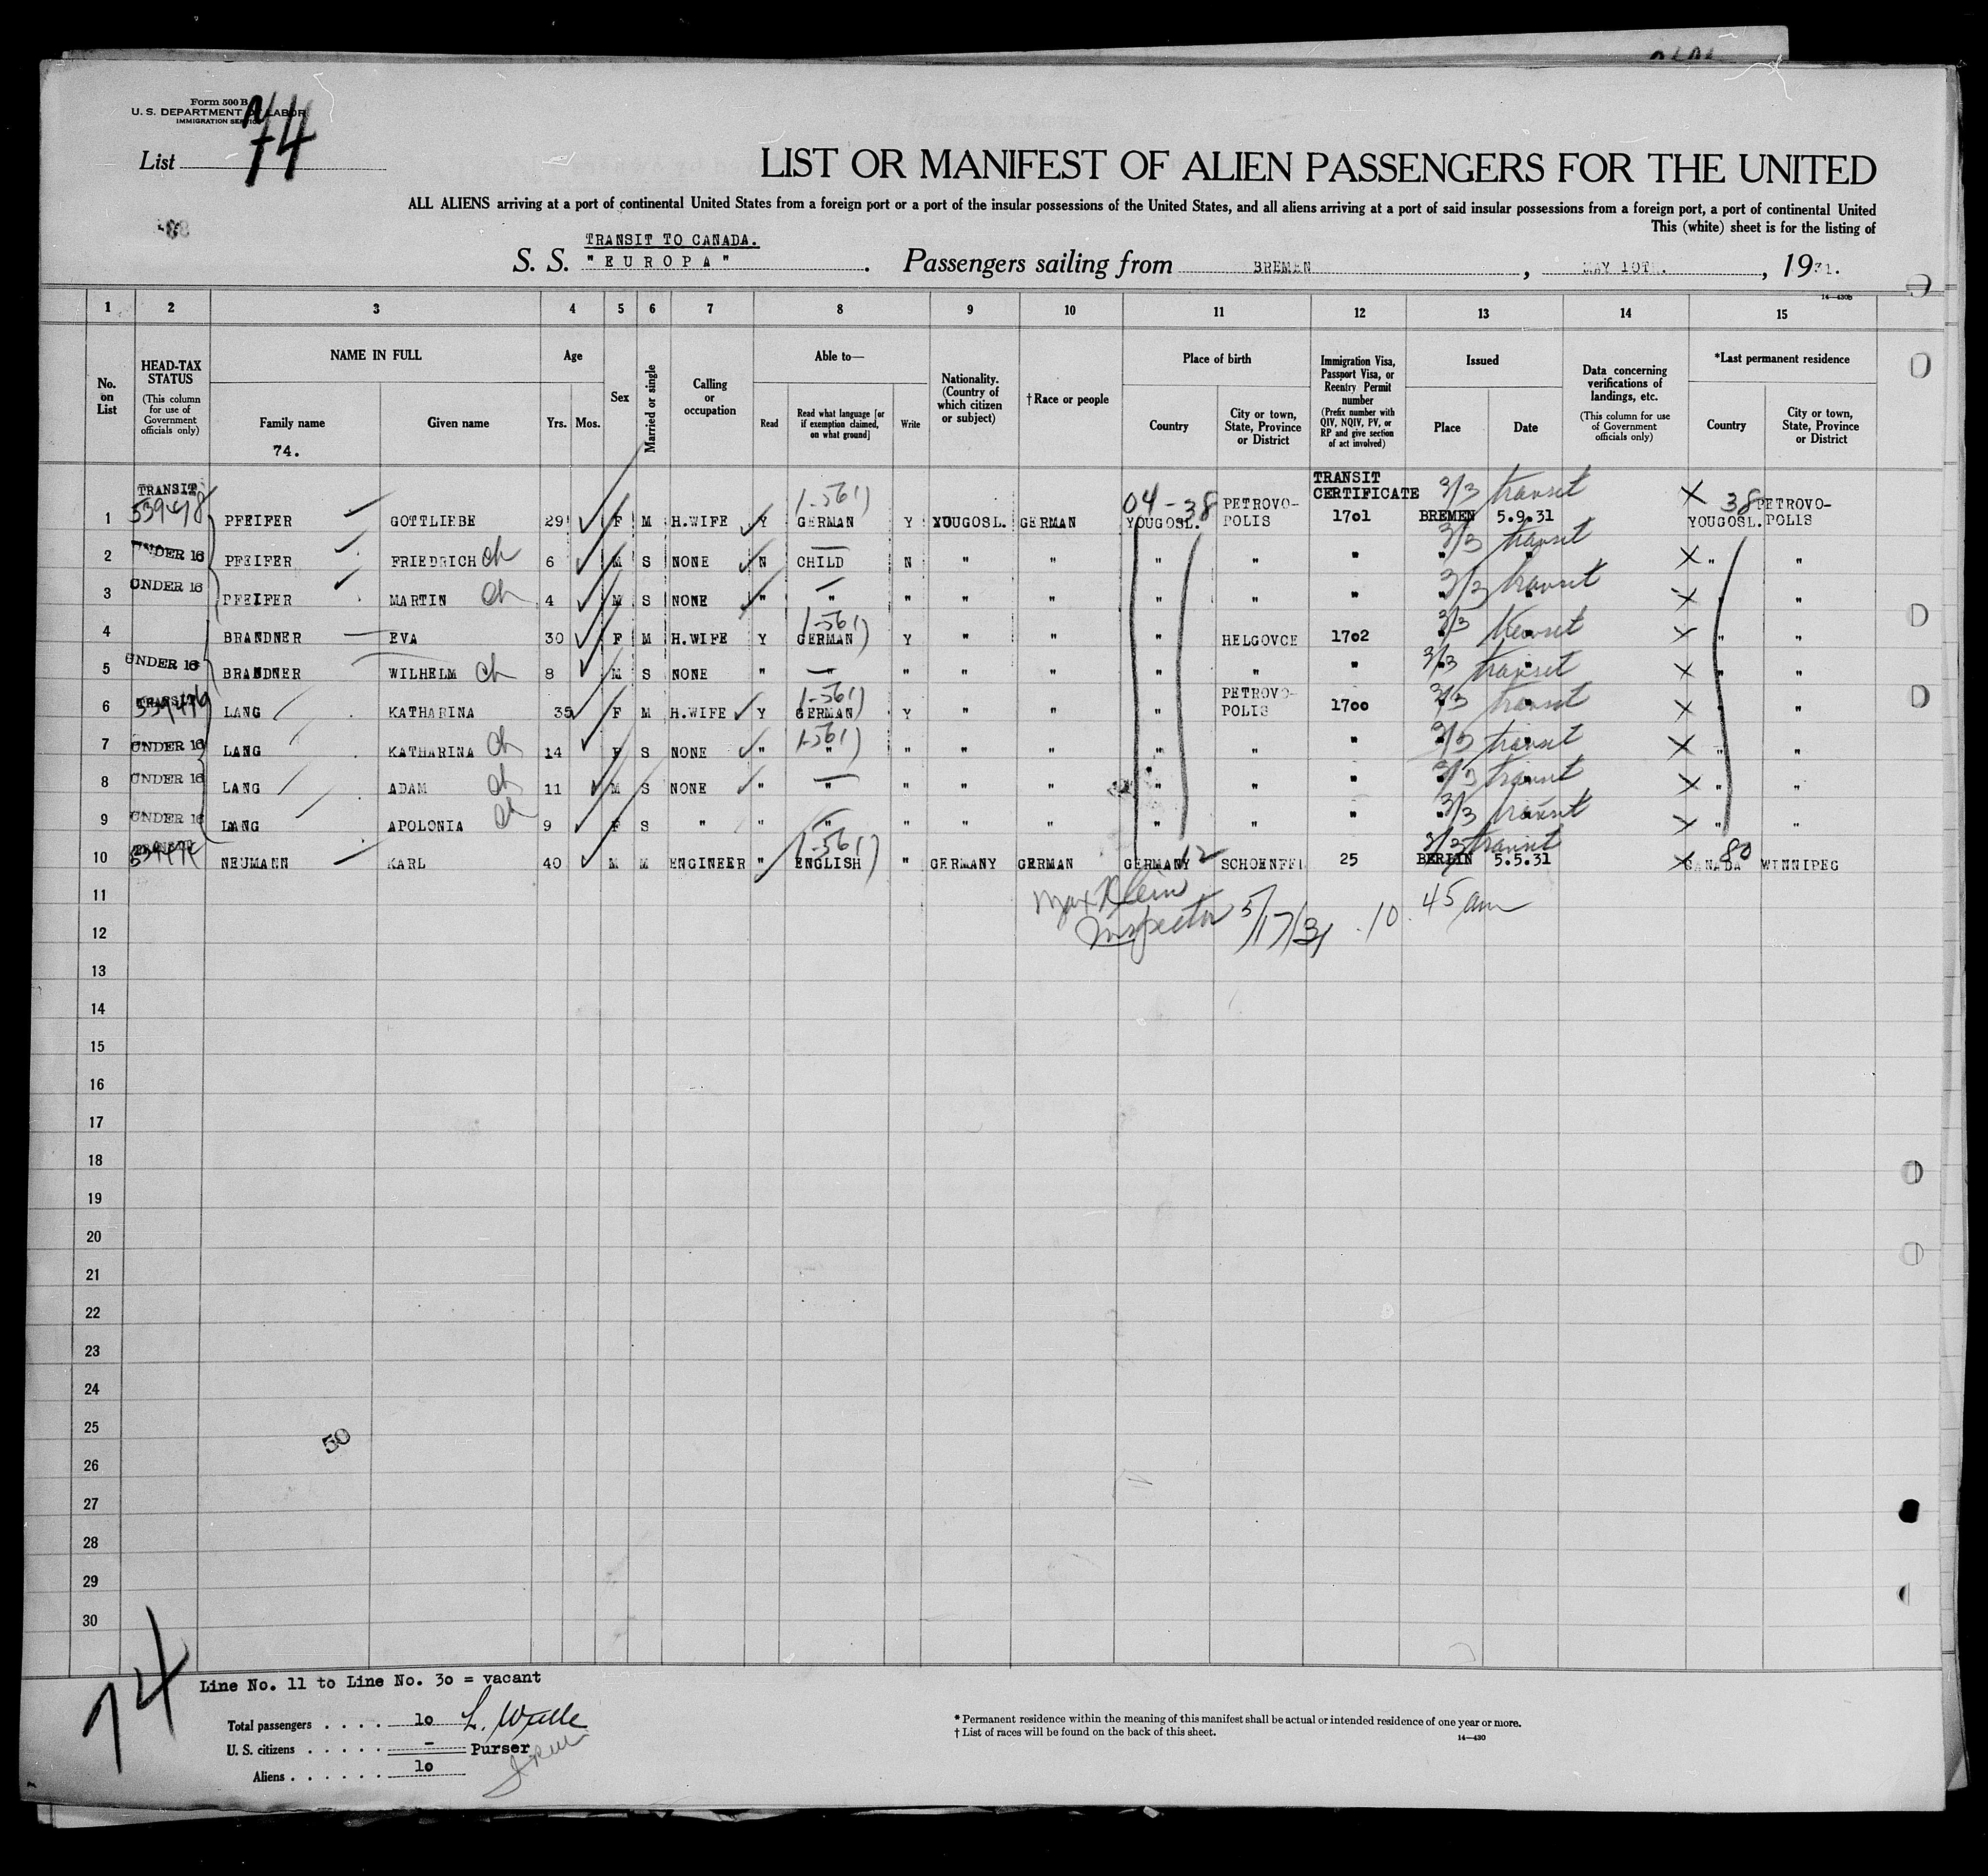 Form 500 B
U. S. DEPARTMENT OF LABOR
IMMIGRATION SERVICE
List 74
LIST OR MANIFEST OF ALIEN PASSENGERS FOR THE UNITED
ALL ALIENS arriving at a port of continental United States from a foreign port or a port of the insular possessions of the United States, and all aliens arriving at a port of said insular possessions from a foreign port, a port of continental United
This (white) sheet is for the listing of
TRANSIT TO CANADA.
S. S. "EUROPA". Passengers sailing from BREMEN, MAY 10TH., 1931.
14—430B
1 2 3 4 5 6 7 8 9 10 11 12 13 14 15
No. on List
HEAD-TAX STATUS (This column for use of Government officials only)
NAME IN FULL
Family name
74.
Given name
Age
Yrs. Mos.
Sex
Married or single
Calling or occupation
Able to—
Read
Read what language [or if exemption claimed, on what ground]
Write
Nationality. (Country of which citizen or subject)
†Race or people
Place of birth
Country
City or town, State, Province or District
Immigration Visa, Passport Visa, or Reentry Permit number (Prefix number with QIV, NQIV, PV, or RP and give section of act involved)
Issued
Place
Date
Data concerning verifications of landings, etc. (This column for use of Government officials only)
*Last permanent residence
Country
City or town, State, Province or District
TRANSIT TRANSIT CERTIFICATE
1 539478 PFEIFER GOTTLIEBE 29 F M H.WIFE Y GERMAN 1-561) Y YOUGOSL. GERMAN 04-38 YOUGOSL. PETROVO-POLIS 1701 BREMEN 5.9.31 3/3 transit X 38 YOUGOSL. PETROVO-POLIS
2 UNDER 16 PFEIFER FRIEDRICH ch 6 M S NONE N CHILD N " " " " " " " 3/3 transit X " "
3 UNDER 16 PFEIFER MARTIN ch 4 M S NONE " " " " " " " " " " 3/3 transit X " "
4 BRANDNER EVA 30 F M H.WIFE Y GERMAN 1-561) Y " " " HELGOVCE 1702 " " 3/3 transit X " "
5 UNDER 16 BRANDNER WILHELM ch 8 M S NONE " " " " " " " " " " 3/3 transit X " "
6 TRANSIT LANG KATHARINA 35 F M H.WIFE Y GERMAN 1-561) Y " " " PETROVO-POLIS 1700 " " 3/3 transit X " "
7 UNDER 16 LANG KATHARINA ch 14 F S NONE " " 1-561) " " " " " " " " 3/3 transit X " "
8 UNDER 16 LANG ADAM ch 11 M S NONE " " " " " " " " " " 3/3 transit X " "
9 UNDER 16 LANG APOLONIA ch 9 F S " " " " " " " " " " " 3/3 transit X " "
10 TRANSIT NEUMANN KARL 40 M M ENGINEER " ENGLISH 1-561) " GERMANY GERMAN GERMANY 12 SCHOENFEL 25 BERLIN 5.5.31 3/3 transit X CANADA 80 WINNIPEG
11
Max Klein
Inspector 5/17/31 10.45 am
12
13
14
15
16
17
18
19
20
21
22
23
24
25
50
26
27
28
29
30
74
Line No. 11 to Line No. 30 = vacant
Total passengers . . . . 10 L. Wulle
U. S. citizens . . . . . – Purser
Aliens . . . . . . 10
* Permanent residence within the meaning of this manifest shall be actual or intended residence of one year or more.
† List of races will be found on the back of this sheet.
14—430